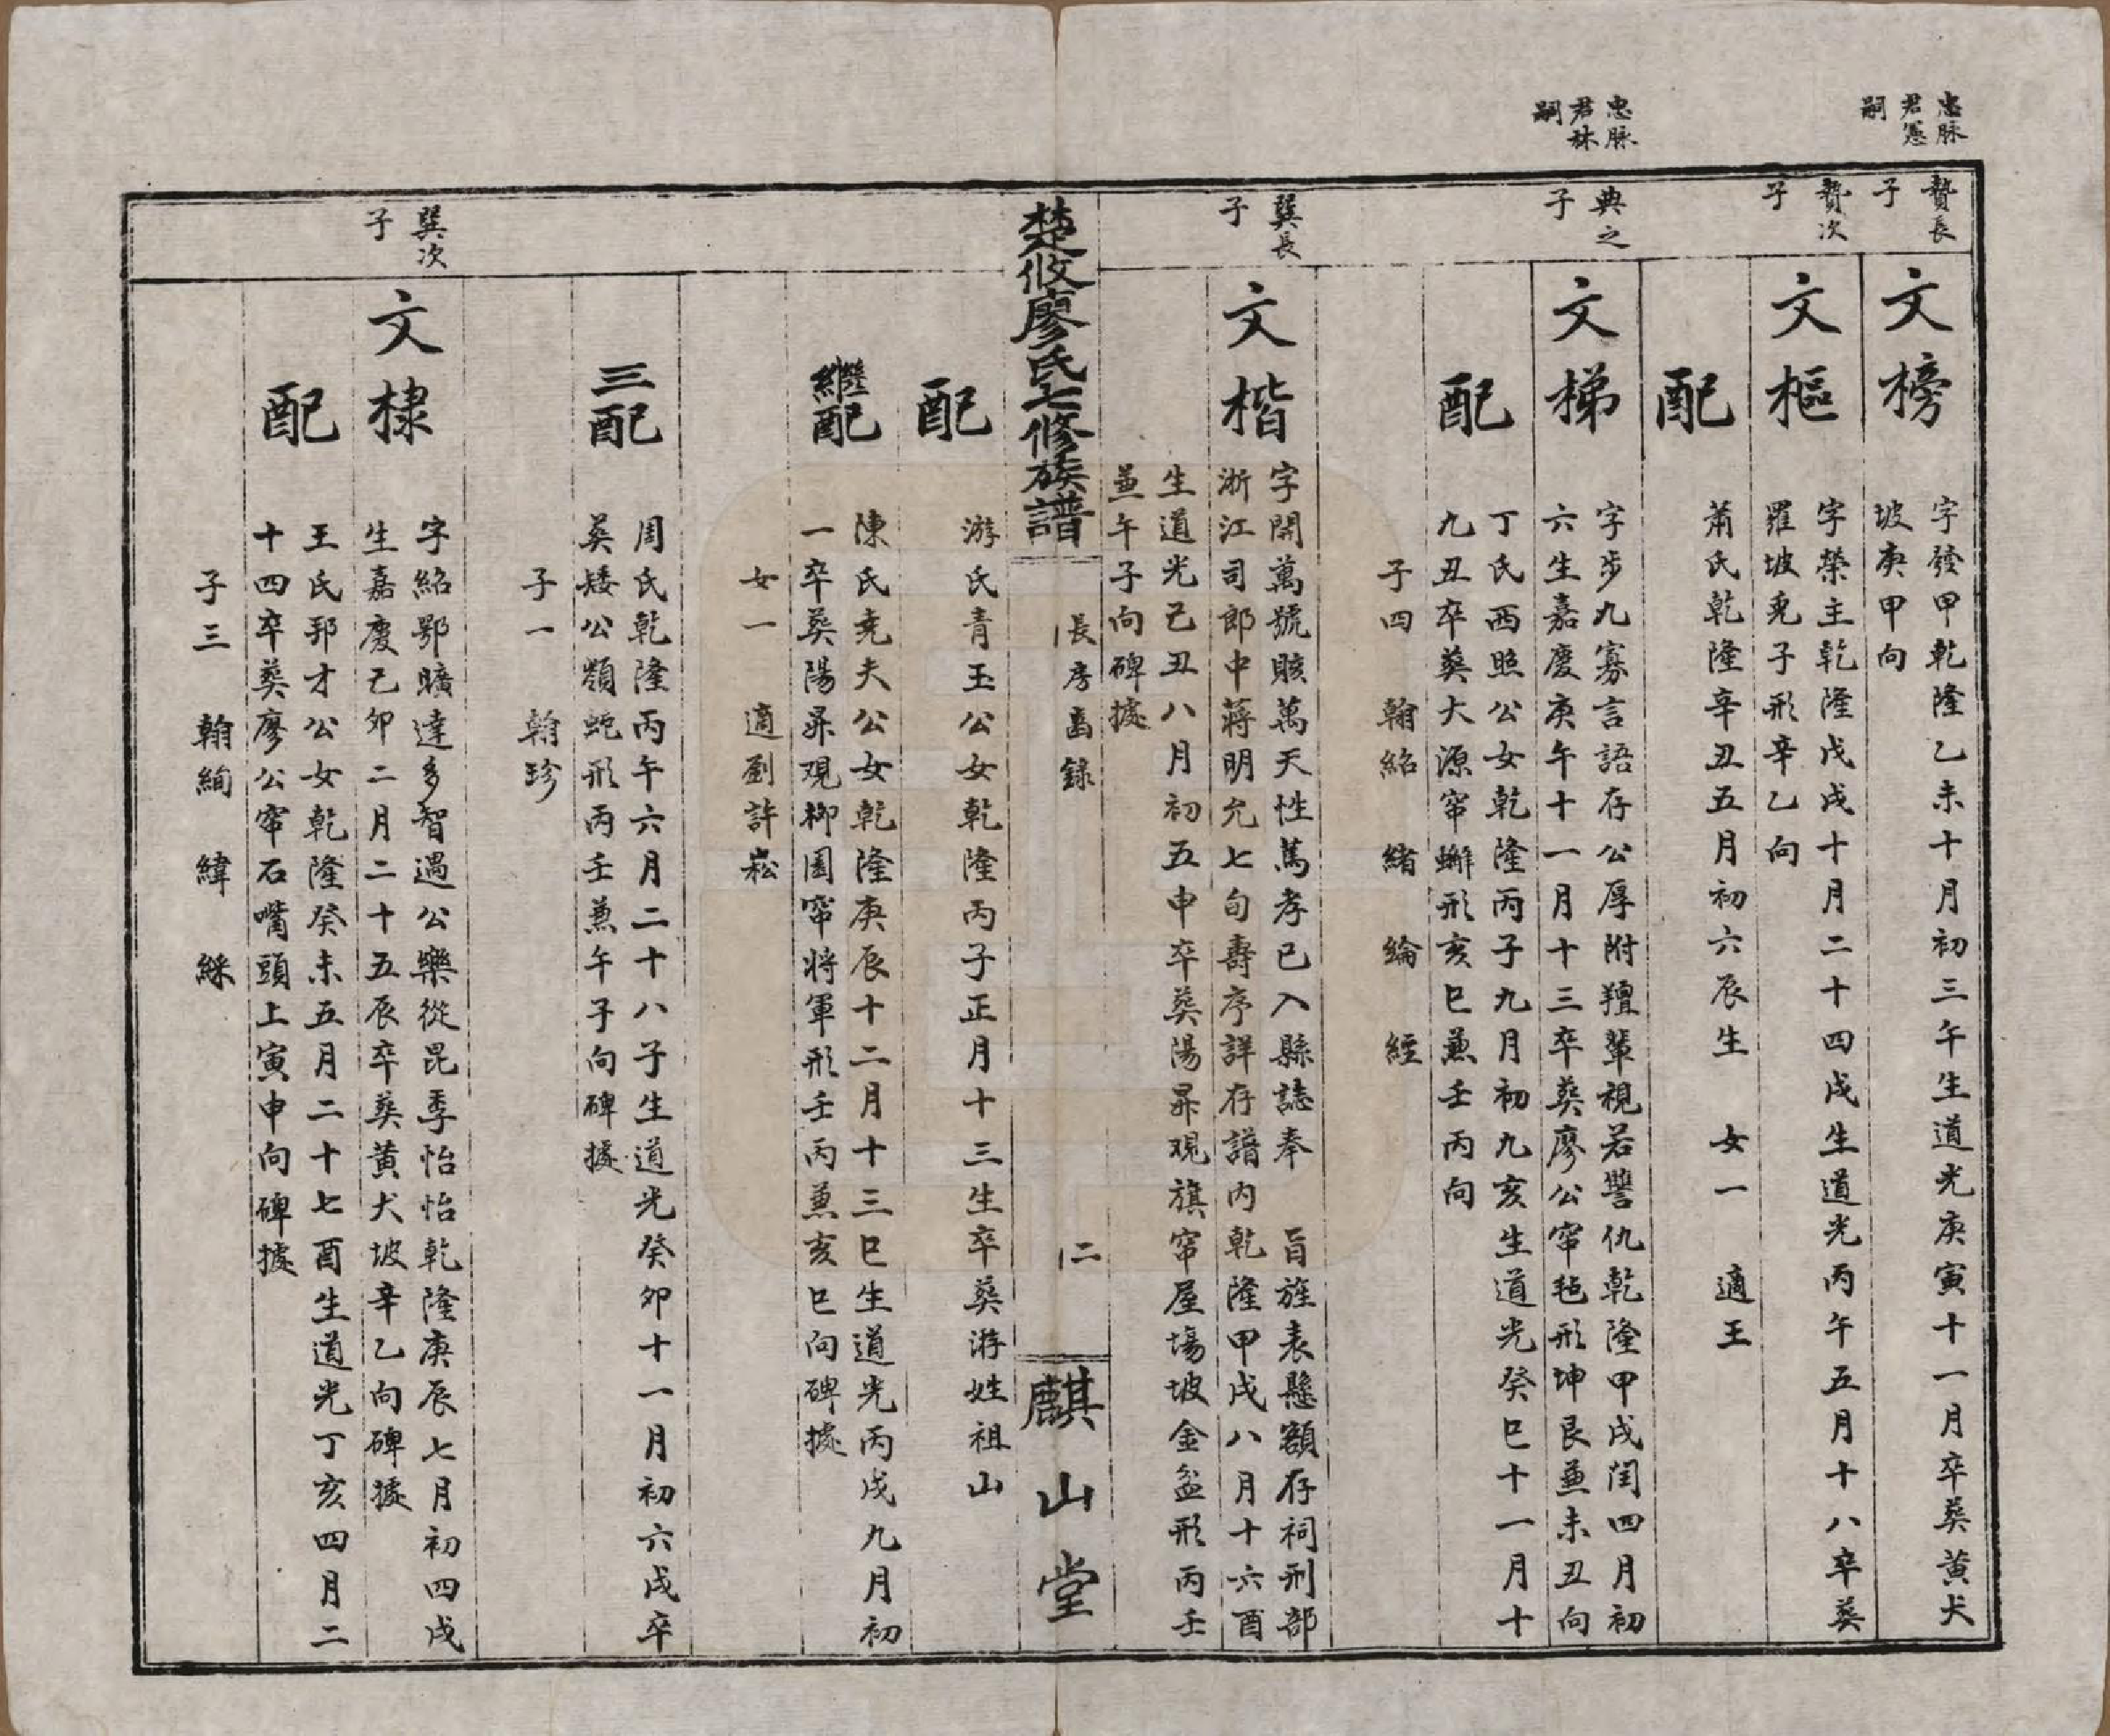 忠脉
君憑
嗣
贊長
子
文榜
字發甲乾隆乙未十月初三午生道光庚寅十一月卒葵黄犬
坡庚甲向
贊次
子
文樞
字榮主乾隆戊戌十月二十四戌生道光丙午五月十八卒葵
羅坡兎子形辛乙向
配
蕭氏乾隆辛丑五月初六辰生 女一 適王
忠脉
君秝
嗣
典之
子
文梯
字步九寡言語存公厚附羶輩視若讐仇乾隆甲戌閏四月初
六生嘉慶庚午十一月十三卒葵廖公窜毡形坤艮兼未丑向
配
丁氏西照公女乾隆丙子九月初九亥生道光癸巳十一月十
九丑卒葵大源窜蠏形亥巳兼壬丙向
子四 翰紹 緒 綸 經
巽長
子
文楷
字開萬號賅萬天性篤孝已入縣誌奉 旨旌表懸額存祠刑部
浙江司郎中蔣明允七旬壽序詳存譜内乾隆甲戌八月十六酉
生道光己丑八月初五申卒葵陽昇观旗窜屋塲坡金盆形丙壬
兼午子向碑據
楚攸廖氏七修族譜
長房齒錄
二
麒山堂
配
游氏青玉公女乾隆丙子正月十三生卒葵游姓祖山
繼配
陳氏堯夫公女乾隆庚辰十二月十三巳生道光丙戌九月初
一卒葵陽昇观柳園窜将軍形壬丙兼亥巳向碑據
女一 適劉許崧
三配
周氏乾隆丙午六月二十八子生道光癸卯十一月初六戌卒
葵矮公領蛇形丙壬兼午子向碑據
子一 翰珍
巽次
子
文棣
字紹鄂曠達多智遇公樂從昆季怡怡乾隆庚辰七月初四戌
生嘉慶乙卯二月二十五辰卒葵黄犬坡辛乙向碑據
配
王氏邦才公女乾隆癸未五月二十七酉生道光丁亥四月二
十四卒葵廖公窜石嘴頭上寅申向碑據
子三 翰絢 緯 綵